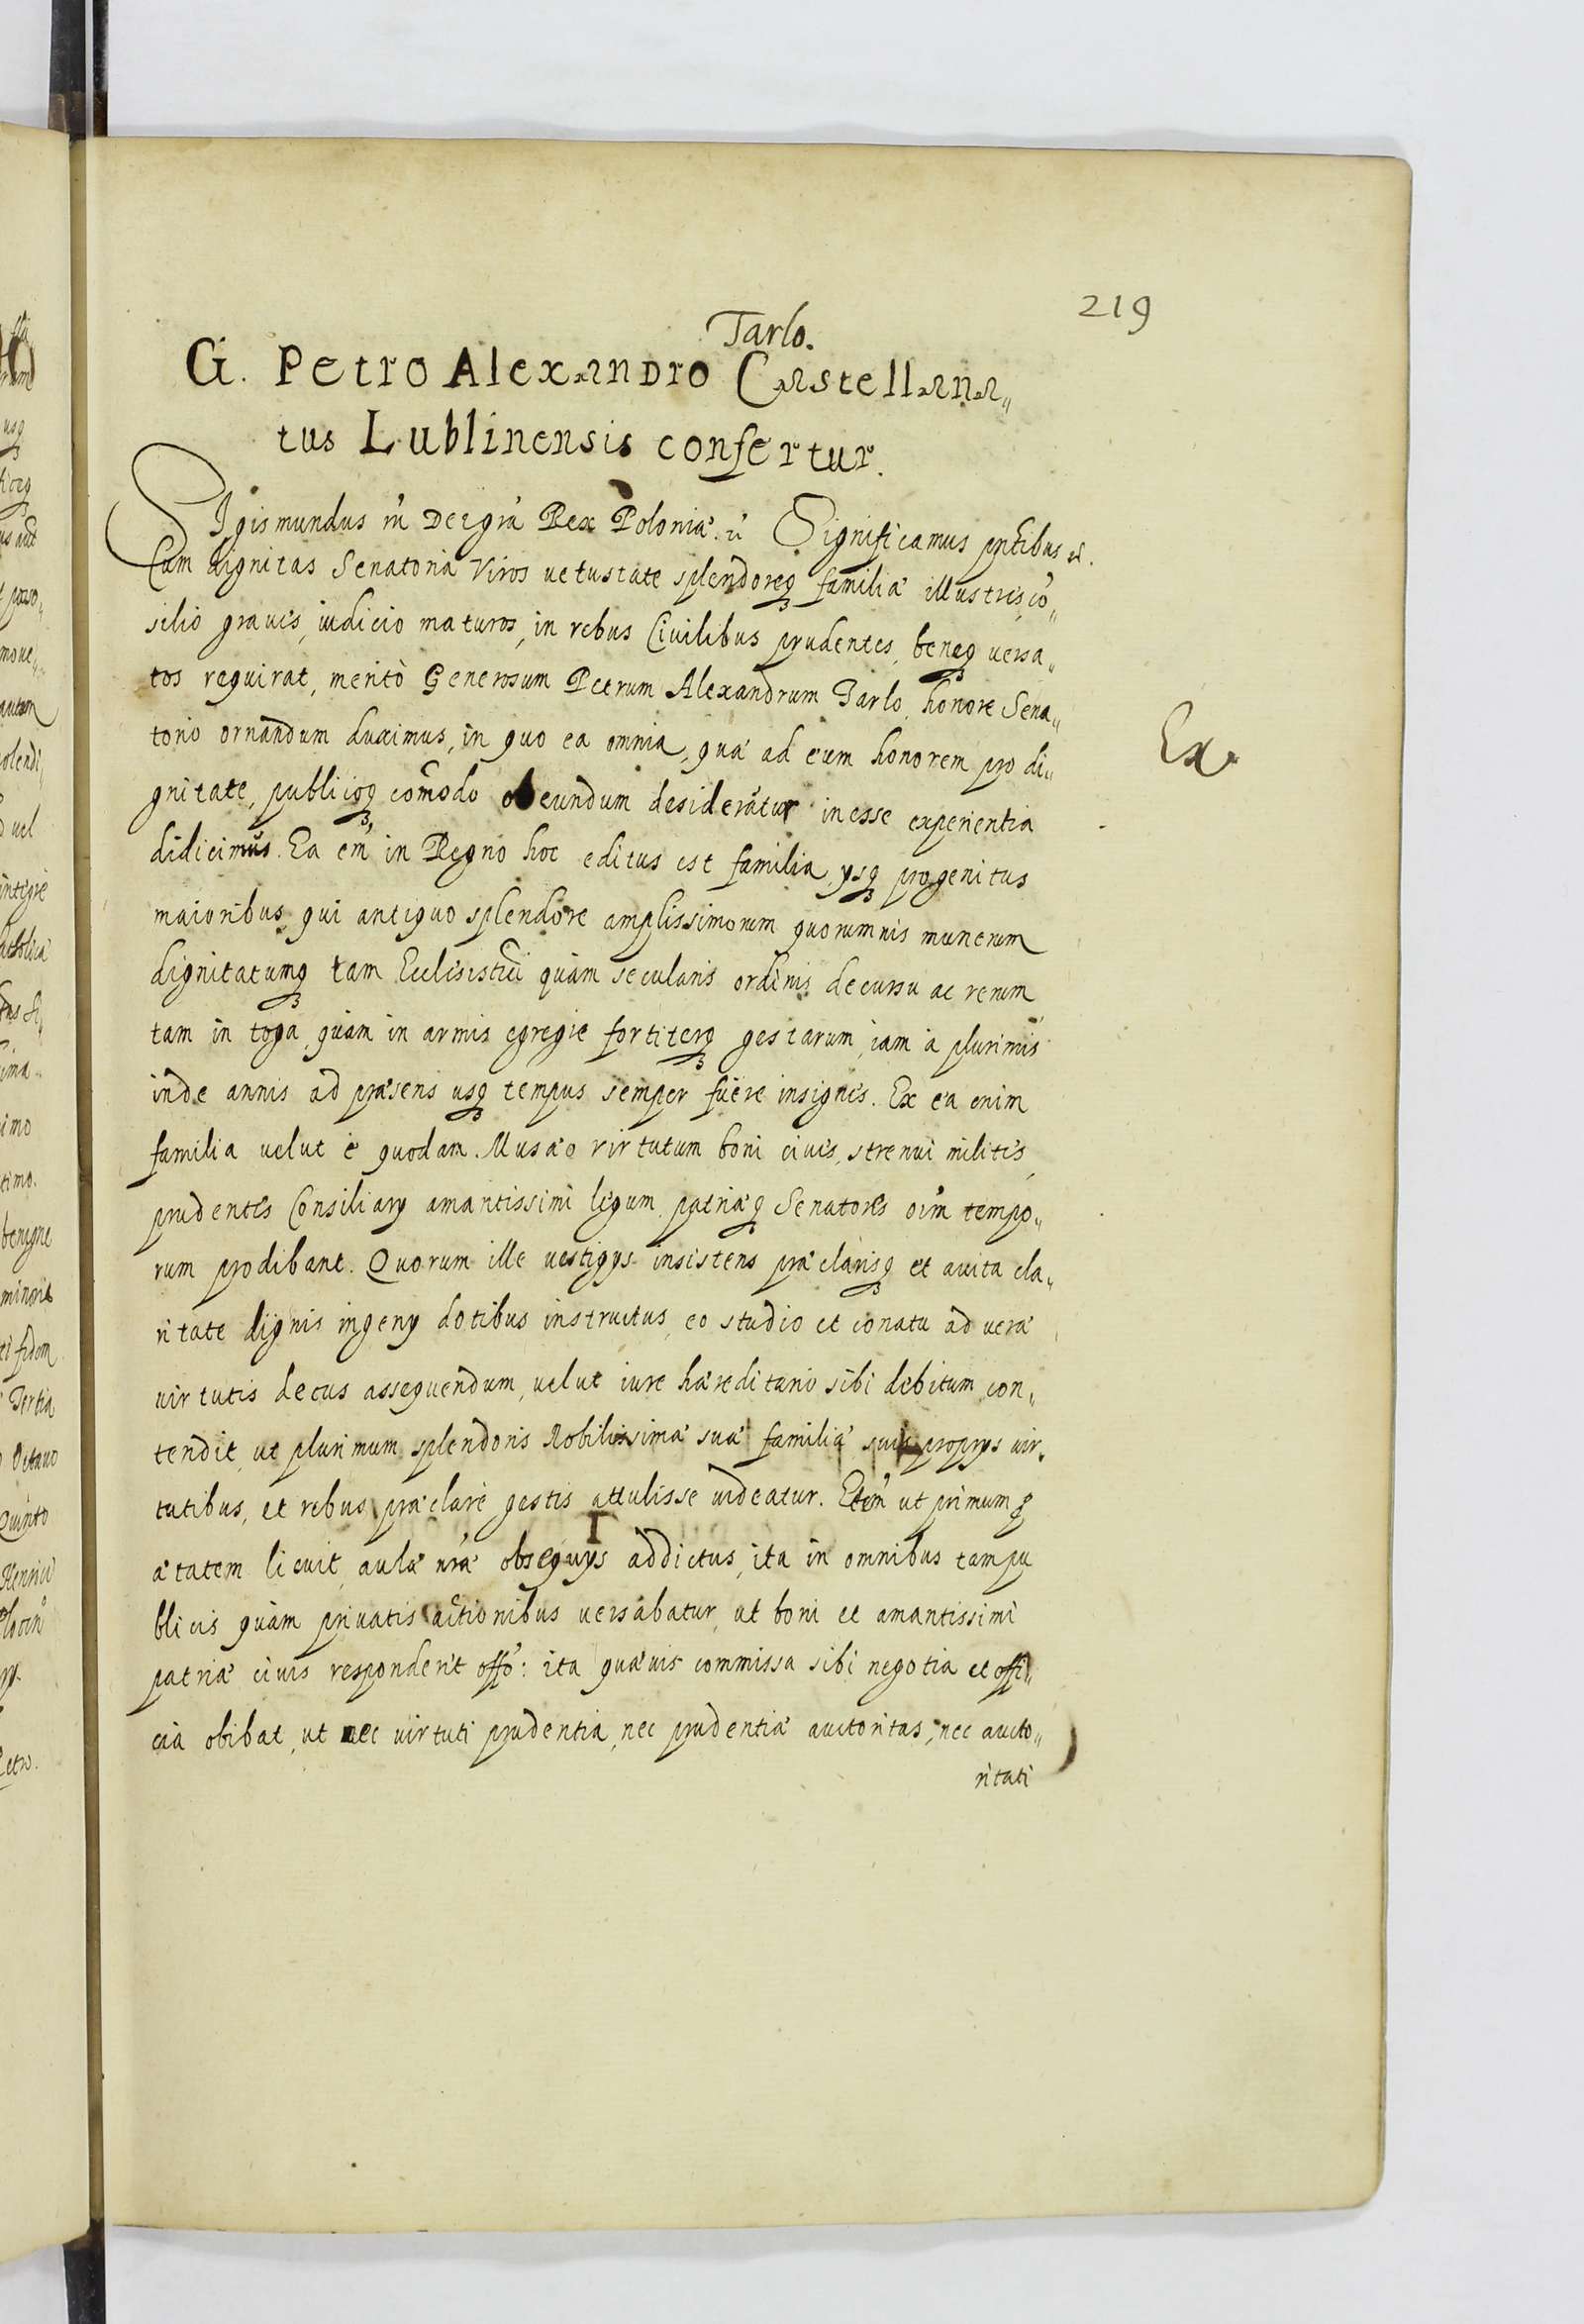 219
Tarlo.
G. Petro Alexandro Castellana„
tus Lublinensis confertur.
Sigismundus III Dei gra Rex Poloniæ. &c Significamus pntibus &c.
Cum dignitas Senatoria Viros uetustate splendoreq familiæ illustres, co„
silio graues, iudicio maturos, in rebus Ciuilibus prudentes, beneq uersa„
tos requirat, meritò Generosum Petrum Alexandrum Tarlo, honore Sena„
torio ornandum duximus, in quo ea omnia, quæ ad eum honorem pro di„
gnitate, publicoq comodo obeundum desiderātur inesse experientia
didicimus. Ea em in Regno hoc editus est familia, ysq progenitus
maioribus, qui antiquo splendore amplissimorum quorumuis munerum
dignitatumq tam Ecclisistici quàm secularis ordinis decursu ac rerum
tam in toga, quàm in armis egregie fortiterq gestarum, iam à plurimis
inde annis ad præsens usq tempus semper fuêre insignes. Ex ea enim
familia uelut è quodam Musæo virtutum boni ciues, strenui milites,
prudentes Consiliary amantissimi legum, patriæq Senatores oim tempo„
rum prodibant. Quorum ille uestigys insistens præclarisq et auita cla„
ritate dignis ingeny dotibus instructus, eo studio et conatu ad ueræ
uirtutis decus assequendum, uelut iure hæreditario sibi debitum, con„
tendit, ut plurimum splendoris Nobilissimæ suæ familiæ suis proprys uir„
tutibus, et rebus præclarè gestis attulisse uideatur. Etem ut primum q
ætatem licuit, aulæ nræ obsequys addictus, ita in omnibus tam pu
blicis quàm priuatis actionibus uersabatur, ut boni et amantissimi
patriæ ciuis responderit offo: ita quæuis commissa sibi negotia et offi„
cia obibat, ut nec uirtuti prudentia, nec prudentiæ auctoritas, nec aucto„
ritati
Ex